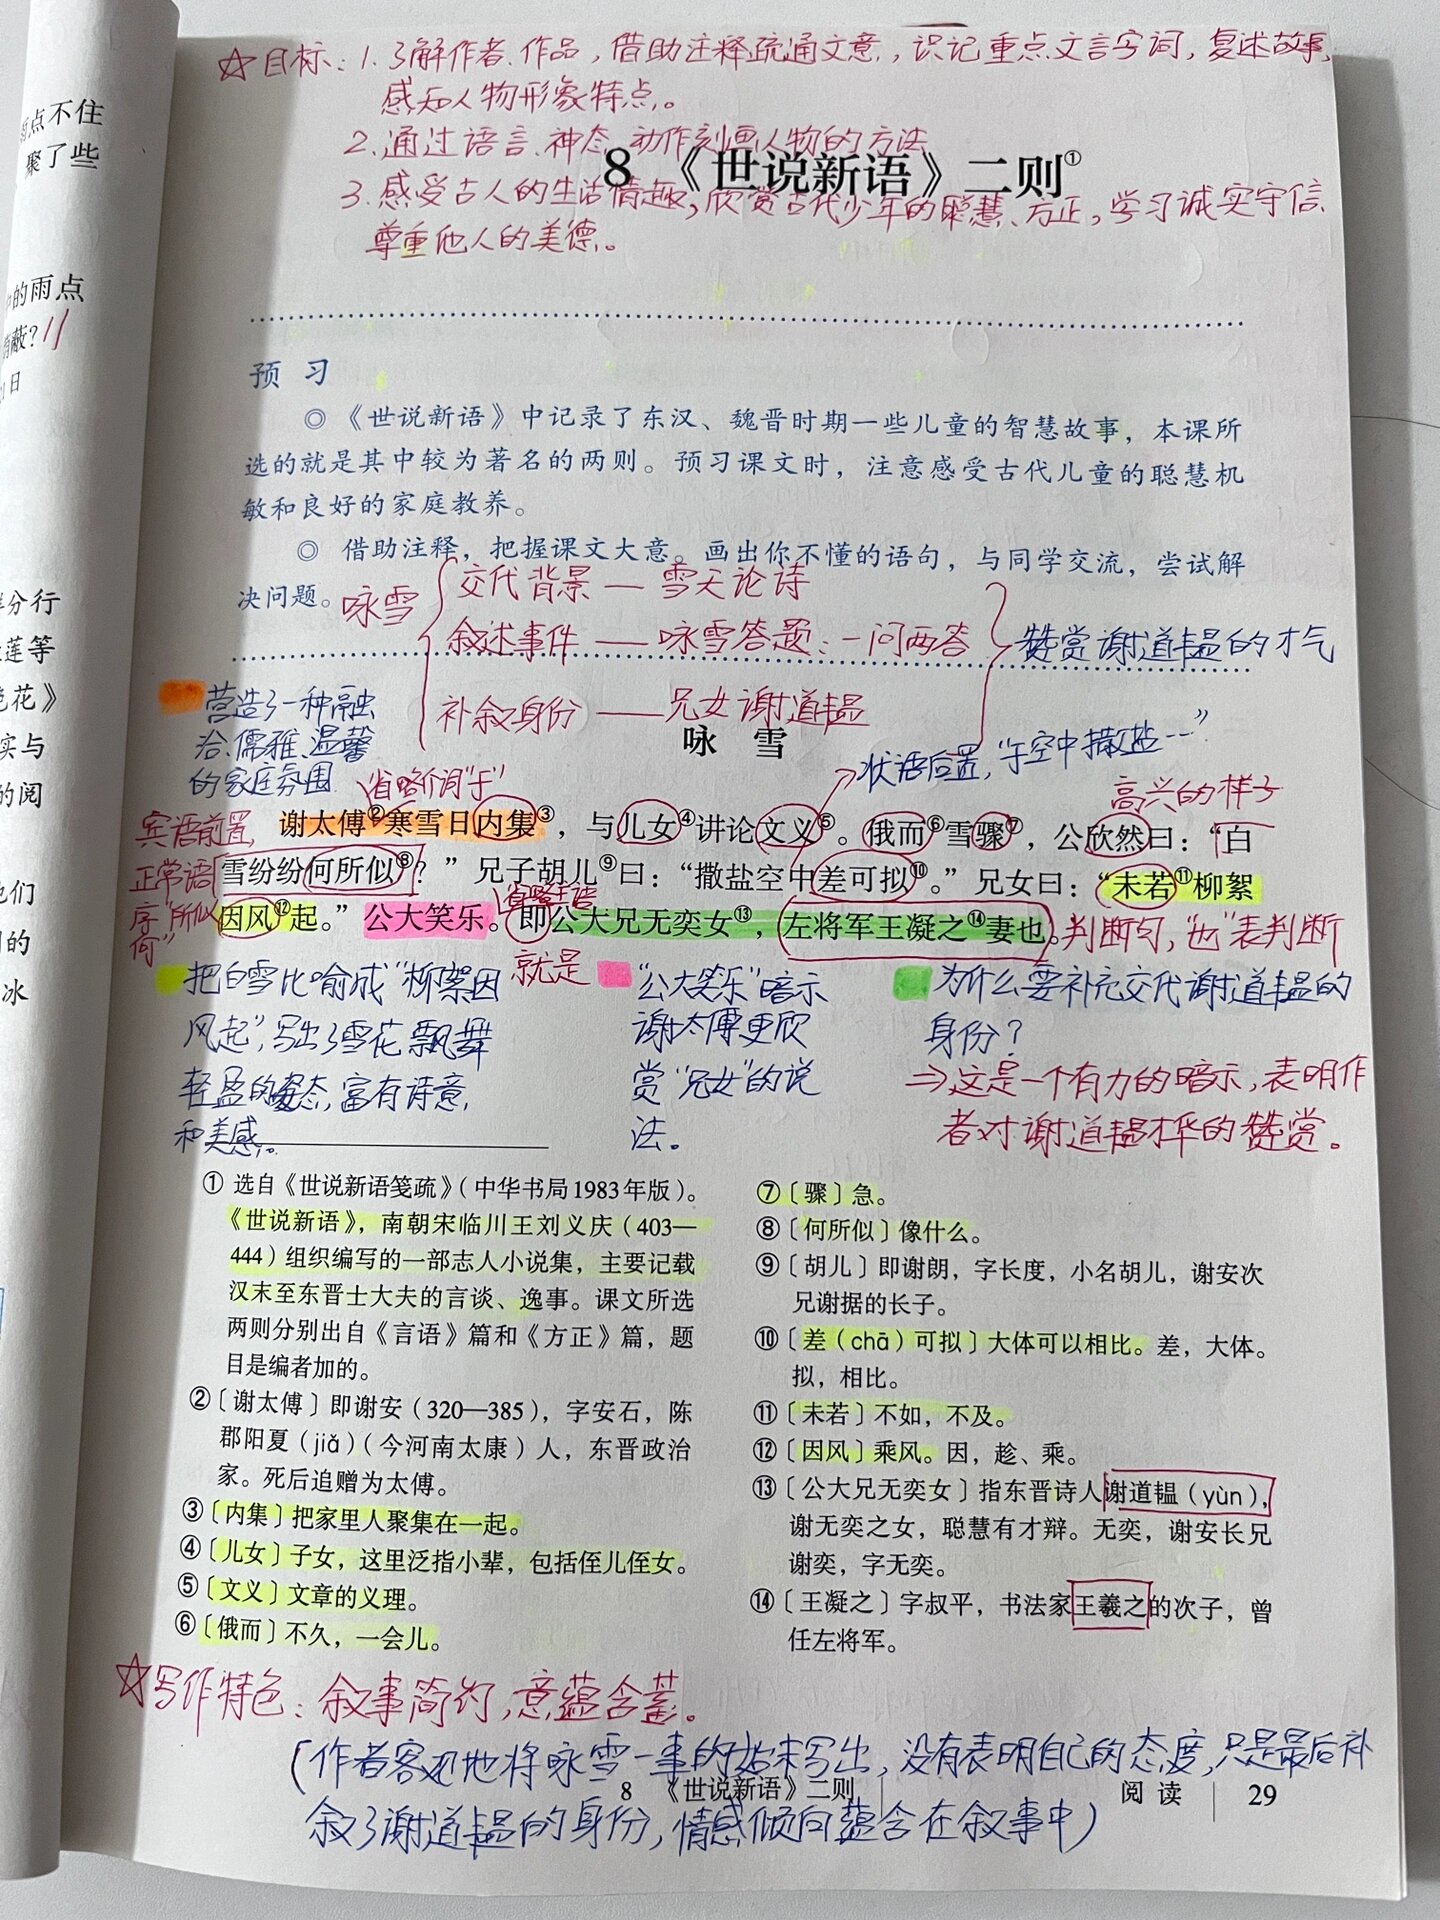 点不住
聚了些
的雨点
蔽？11
日
分行
莲等
花》
实与
的阅
他们
的
冰
☆目标：1.了解作者、作品，借助注释疏通文意，识记重点文言字词，复述故事，
感知人物形象特点。
2.通过语言、神态、动作刻画人物的方法
8 《世说新语》二则①
3.感受古人的生活情趣，欣赏古代少年的聪慧、方正，学习诚实守信、
尊重他人的美德。
预 习
◎《世说新语》中记录了东汉、魏晋时期一些儿童的智慧故事，本课所
选的就是其中较为著名的两则。预习课文时，注意感受古代儿童的聪慧机
敏和良好的家庭教养。
◎ 借助注释，把握课文大意。画出你不懂的语句，与同学交流，尝试解
决问题。
咏雪
交代背景—雪天论诗
叙述事件——咏雪答题：一问两答
补叙身份——兄女谢道韫
赞赏谢道韫的才气
营造了一种融
洽、儒雅、温馨
的家庭氛围
咏 雪
状语后置，“于空中撒盐……”
省略介词“于”
高兴的样子
宾语前置，
正常语
序“所似
何”
谢太傅②寒雪日内集③，与儿女④讲论文义⑤。俄而⑥雪骤⑦，公欣然曰：“白
雪纷纷何所似⑧？”兄子胡儿⑨曰：“撒盐空中差可拟⑩。”兄女曰：“未若⑪柳絮
省略主语
因风⑫起。”公大笑乐。即公大兄无奕女⑬，左将军王凝之⑭妻也。
判断句，“也”表判断
就是
把白雪比喻成“柳絮因
风起”，写出了雪花飘舞
轻盈的姿态，富有诗意
和美感。
“公大笑乐”暗示
谢太傅更欣
赏“兄女”的说
法。
为什么要补充交代谢道韫的
身份？
⇒这是一个有力的暗示，表明作
者对谢道韫才华的赞赏。
① 选自《世说新语笺疏》（中华书局1983年版）。
《世说新语》，南朝宋临川王刘义庆（403—
444）组织编写的一部志人小说集，主要记载
汉末至东晋士大夫的言谈、逸事。课文所选
两则分别出自《言语》篇和《方正》篇，题
目是编者加的。
②〔谢太傅〕即谢安（320—385），字安石，陈
郡阳夏（jiǎ）（今河南太康）人，东晋政治
家。死后追赠为太傅。
③〔内集〕把家里人聚集在一起。
④〔儿女〕子女，这里泛指小辈，包括侄儿侄女。
⑤〔文义〕文章的义理。
⑥〔俄而〕不久，一会儿。
⑦〔骤〕急。
⑧〔何所似〕像什么。
⑨〔胡儿〕即谢朗，字长度，小名胡儿，谢安次
兄谢据的长子。
⑩〔差（chā）可拟〕大体可以相比。差，大体。
拟，相比。
⑪〔未若〕不如，不及。
⑫〔因风〕乘风。因，趁、乘。
⑬〔公大兄无奕女〕指东晋诗人谢道韫（yùn），
谢无奕之女，聪慧有才辩。无奕，谢安长兄
谢奕，字无奕。
⑭〔王凝之〕字叔平，书法家王羲之的次子，曾
任左将军。
☆写作特色：叙事简约，意蕴含蓄。
（作者客观地将咏雪一事的始末写出，没有表明自己的态度，只是最后补
8 《世说新语》二则
阅读 29
叙了谢道韫的身份，情感倾向蕴含在叙事中）